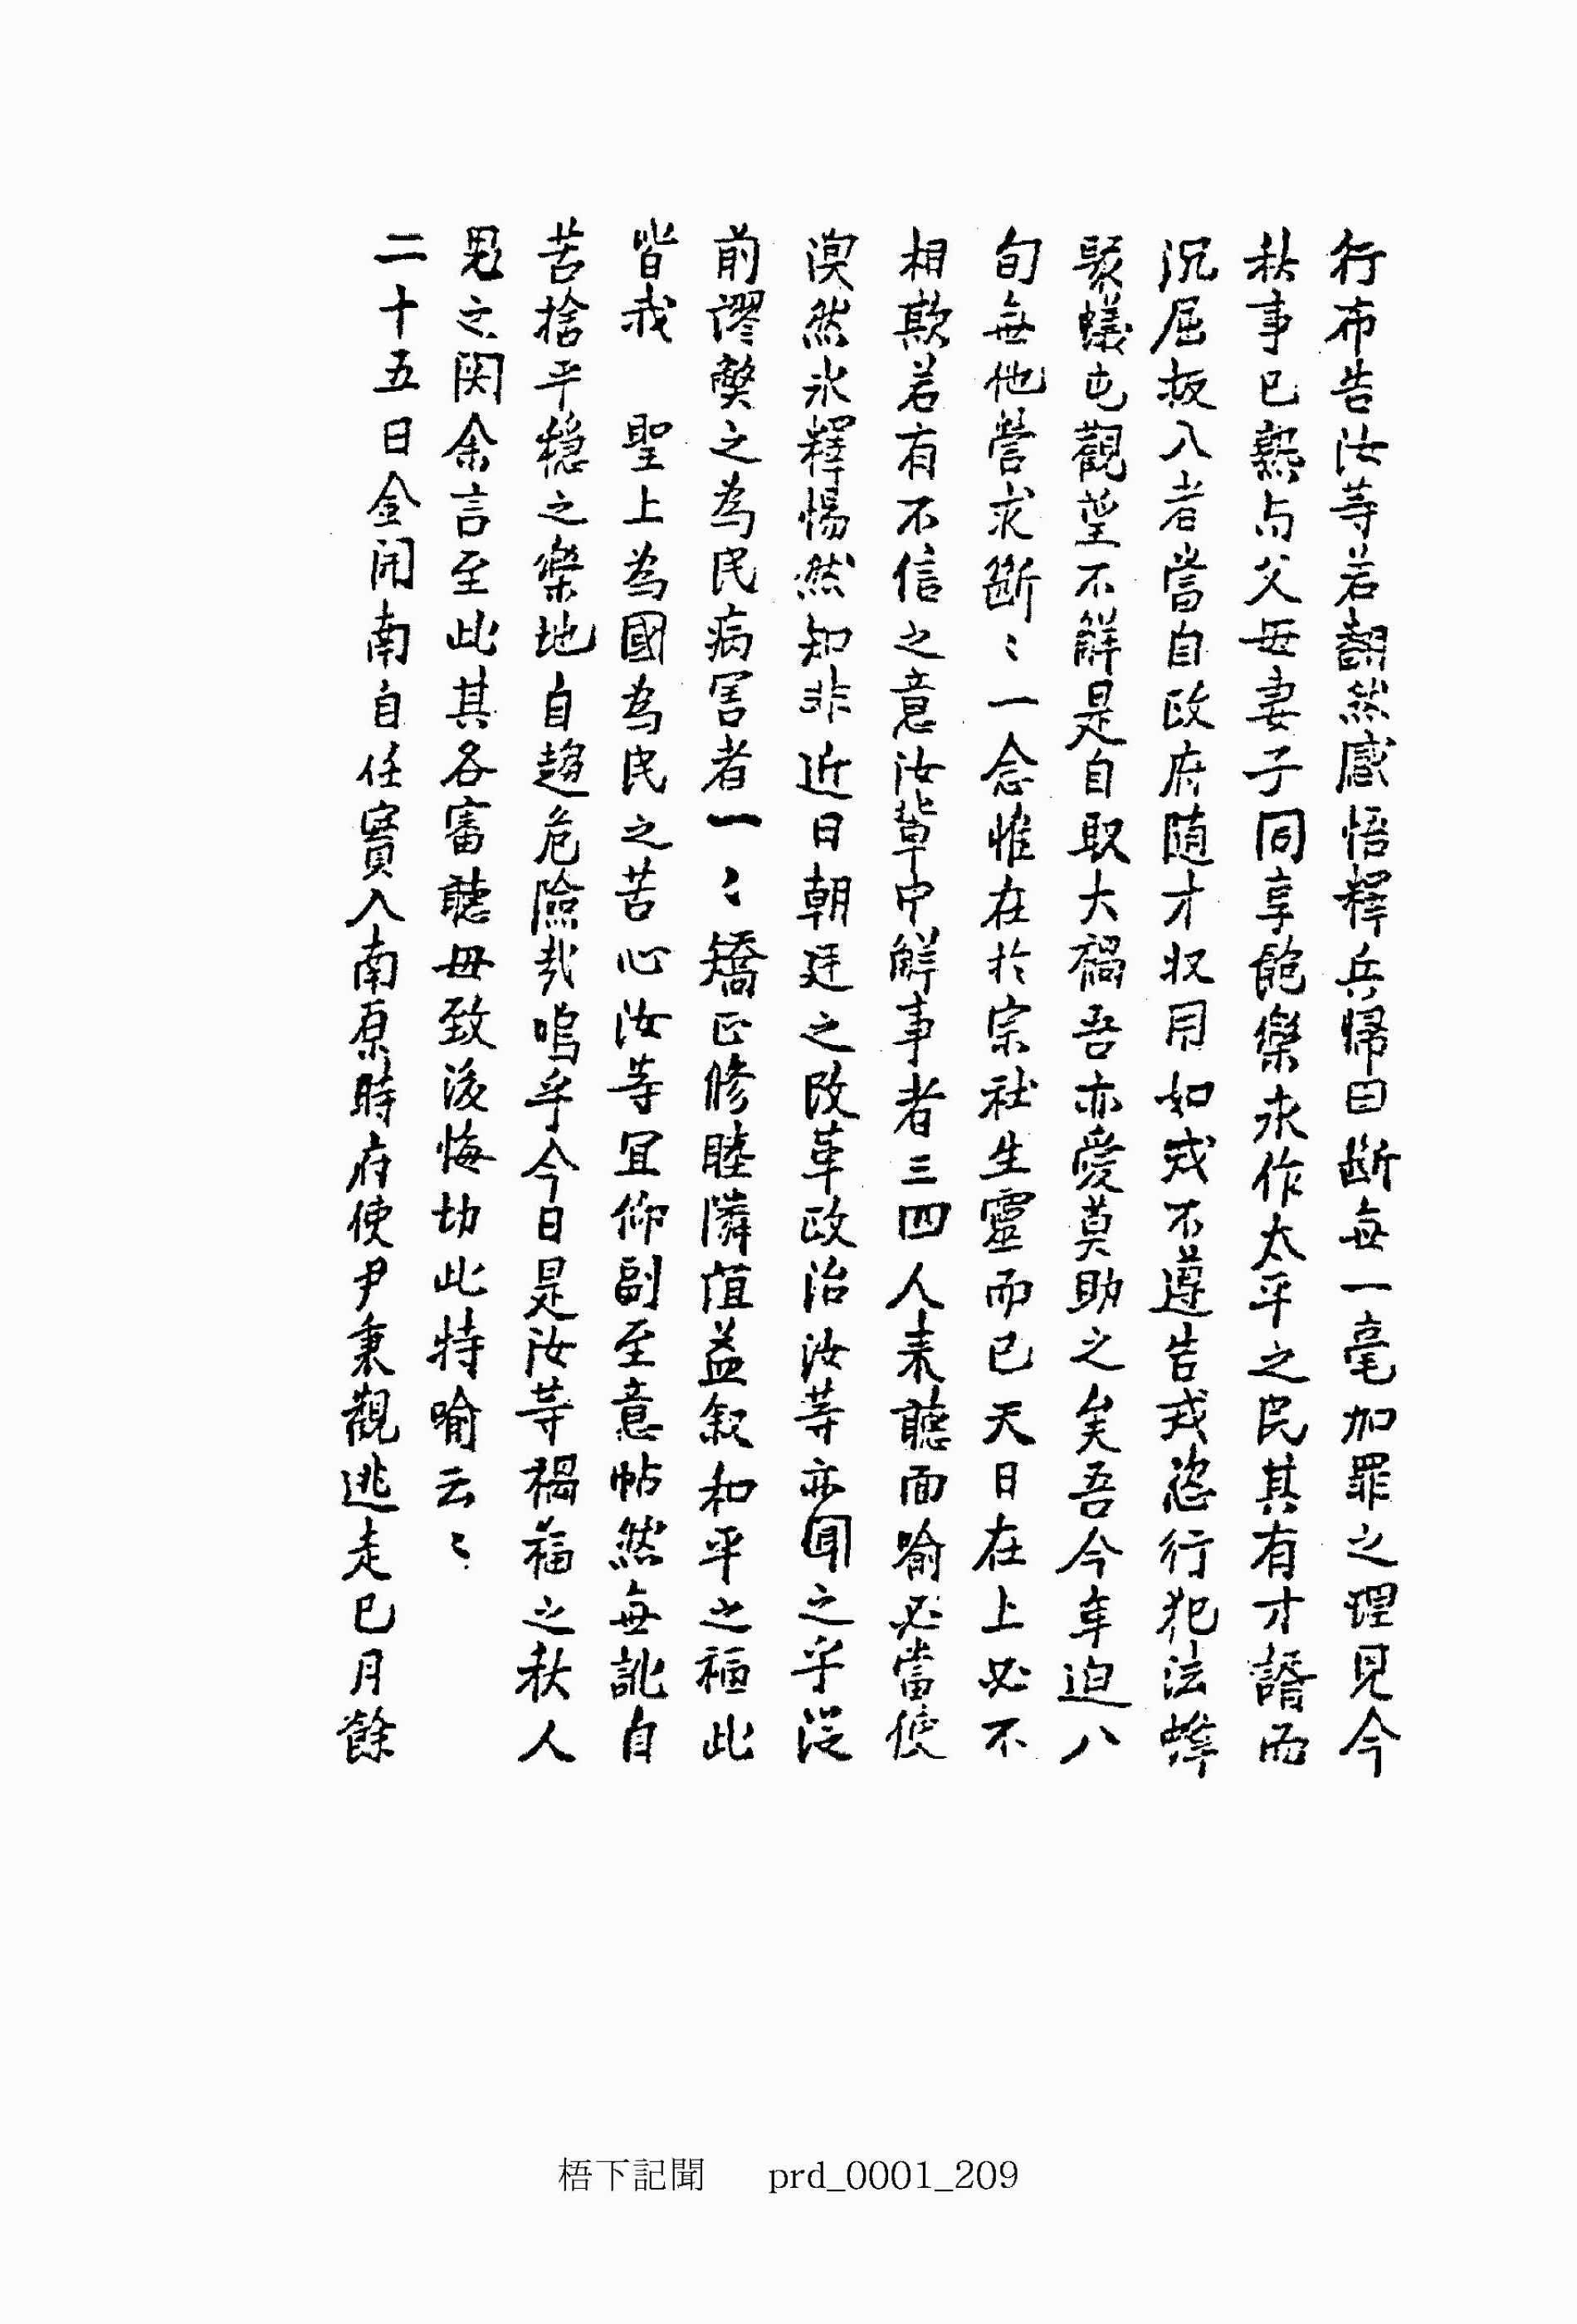 行布告汝等若飜然感悟釋兵歸田斷無一毫加罪之理見今
秋事已熟与父母妻子同享飽樂永作太平之民其有才諝而
沉屈扳入者當自政府随才収用如或不遵告戒恣行犯法蜂
聚蟻屯觀望不觧是自取大禍吾亦愛莫助之矣吾今年迫八
旬無他營求斷〻一念惟在於宗社生靈而已天日在上必不
相欺若有不信之意汝輩中觧事者三四人来聽面喻必當使
渙然氷釋惕然知非近日朝廷之改革政治汝等亦聞之乎従
前謬獘之為民病害者一〻矯正修睦隣誼益敍和平之福此
皆我　聖上為國為民之苦心汝等宜仰副至意帖然無訛自
苦捨平穏之樂地自趨危險哉嗚乎今日是汝等禍福之秋人
鬼之関余言至此其各審聽毋致後悔切此特喻云〻
二十五日金開南自任實入南原時府使尹秉觀逃走已月餘